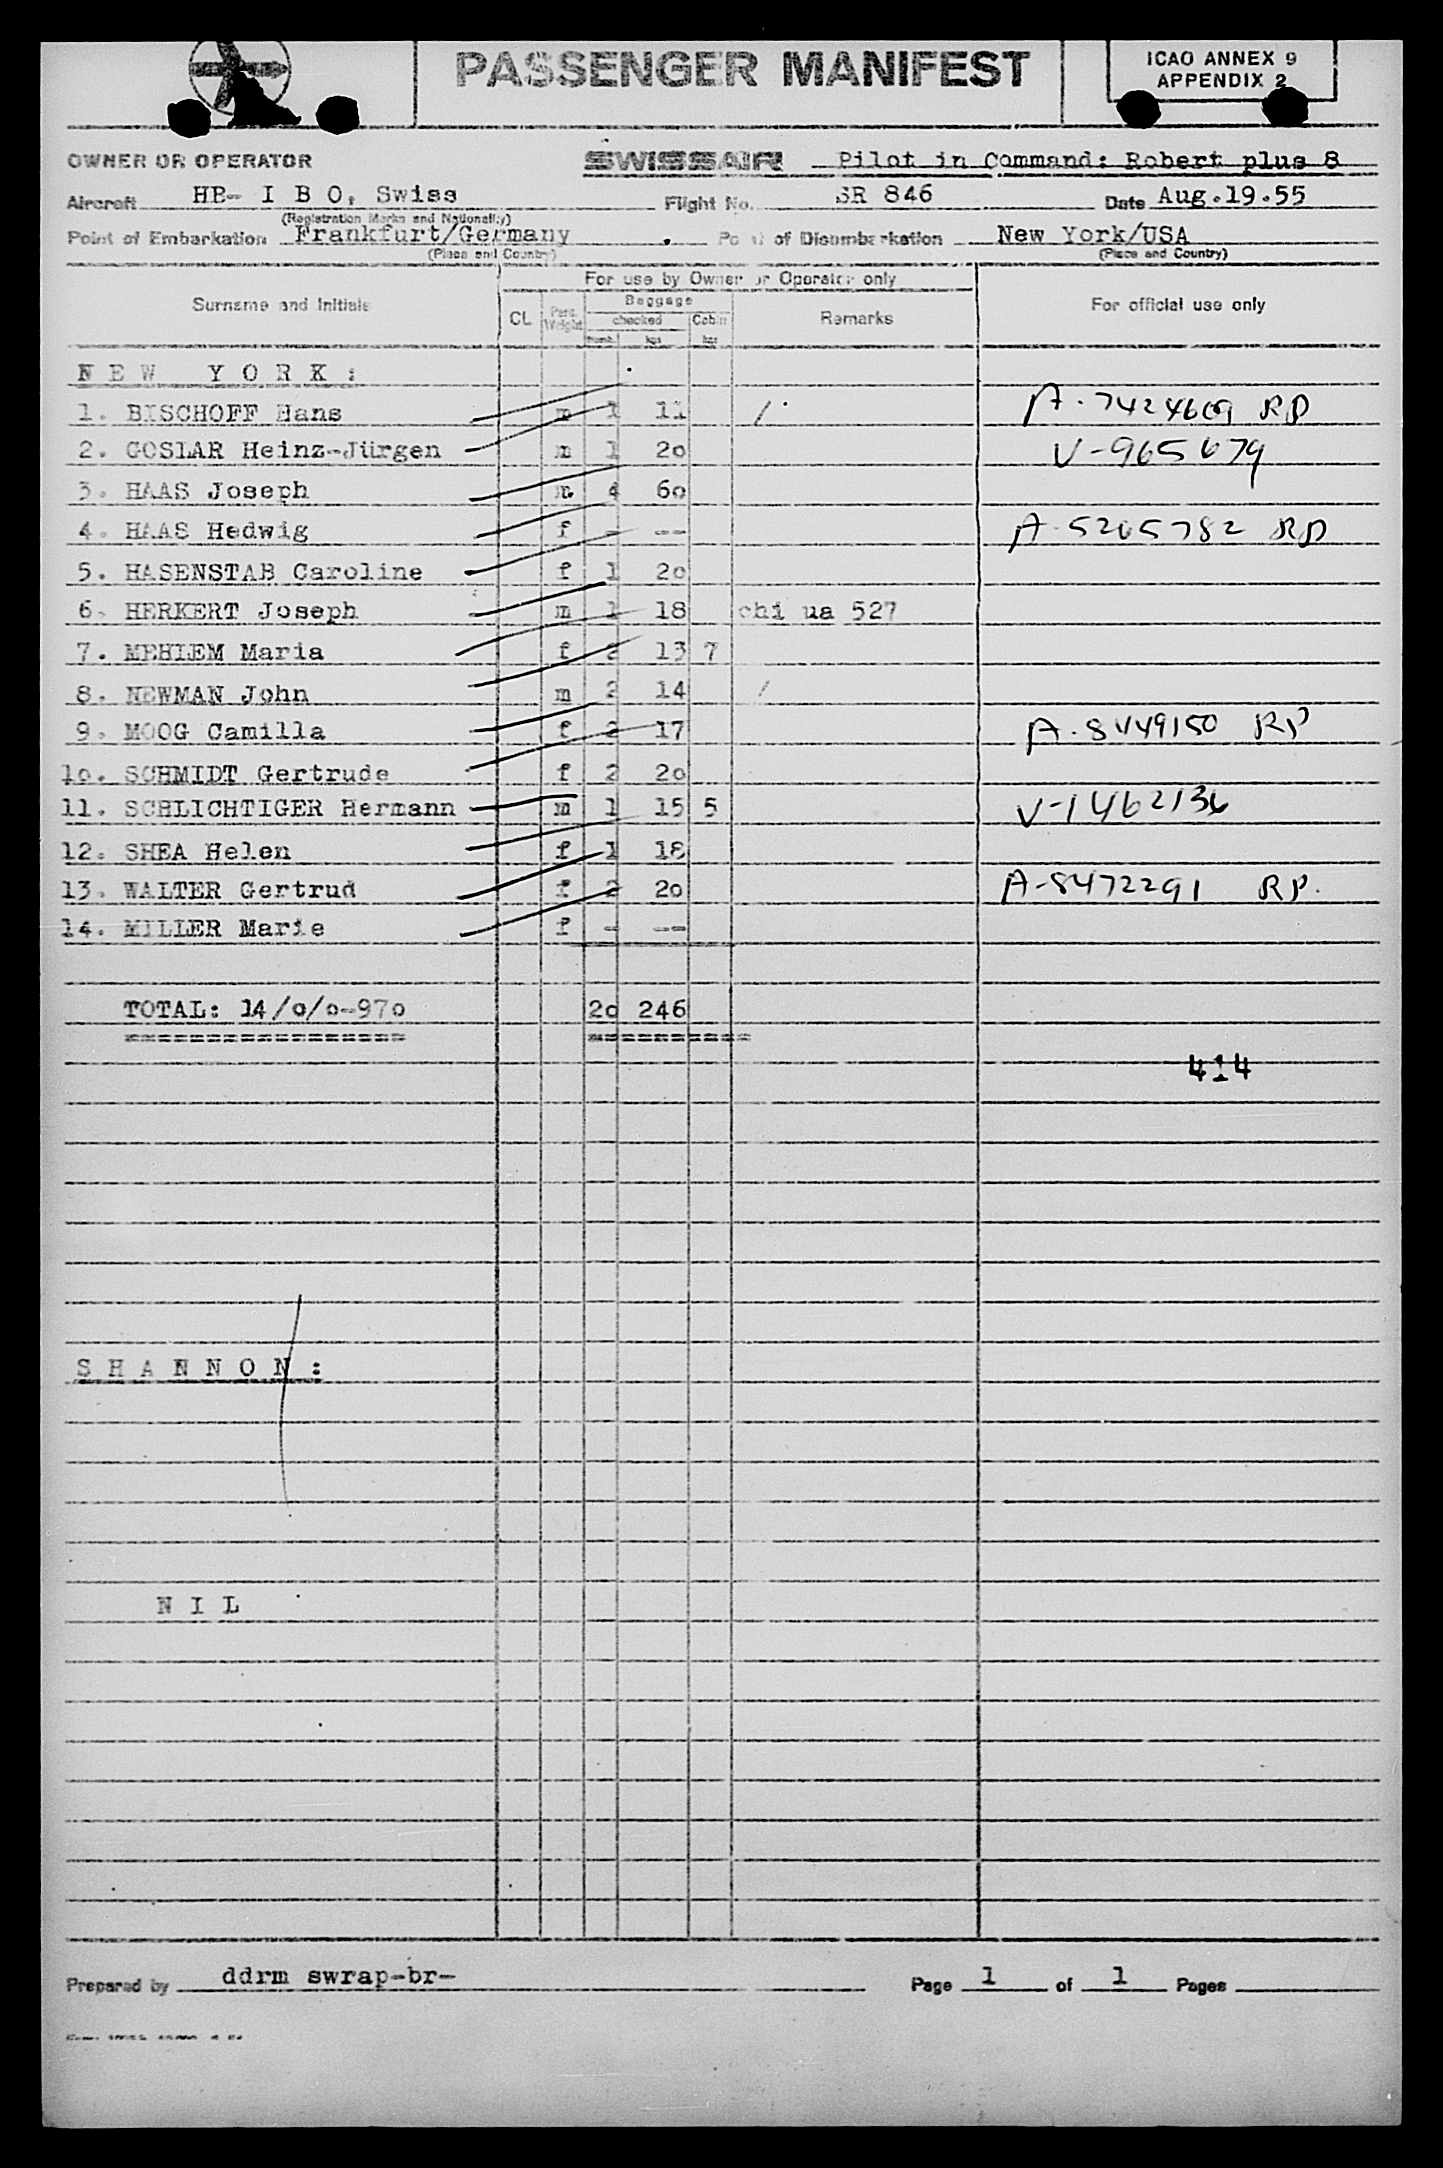 PASSENGER MANIFEST
ICAO ANNEX 9
APPENDIX 2
OWNER OR OPERATOR SWISSAIR Pilot in Command: Robert plus 8
Aircraft HB- I B O, Swiss Flight No. SR 846 Date Aug.19.55
(Registration Marks and Nationality)
Point of Embarkation Frankfurt/Germany Point of Disembarkation New York/USA
(Place and Country) (Place and Country)
For use by Owner or Operator only
Surname and Initials CL Pass. Weight Baggage Remarks For official use only
checked Cabin
numb. kgs kgs
N E W Y O R K :
1. BISCHOFF Hans m 1 11 / A-7424609 RP
2. GOSLAR Heinz-Jürgen m 1 20 V-965679
3. HAAS Joseph m 4 60
4. HAAS Hedwig f - -- A-5265782 RP
5. HASENSTAB Caroline f 1 20
6. HERKERT Joseph m 1 18 chi ua 527
7. MEHLEM Maria f 2 13 7
8. NEWMAN John m 2 14 /
9. MOOG Camilla f 2 17 A-8449150 RP
10. SCHMIDT Gertrude f 2 20
11. SCHLICHTIGER Hermann m 1 15 5 V-1462136
12. SHEA Helen f 1 18
13. WALTER Gertrud f 2 20 A-8472291 RP.
14. MILLER Marie f - --
TOTAL: 14/0/0-970 20 246
================= ==========
414
S H A N N O N :
N I L
Prepared by ddrm swrap-br- Page 1 of 1 Pages